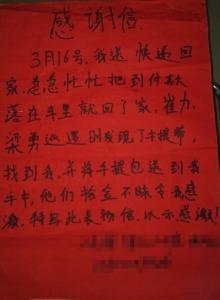 感谢信
3月16号，我送快递回
家，急急忙忙把到付款
落在车里就回了家，崔力、
梁勇巡逻时发现了手提
找到我，并将手提包送到我
手中，他们拾金不昧令我感
激，特写此表扬信，以示感谢！